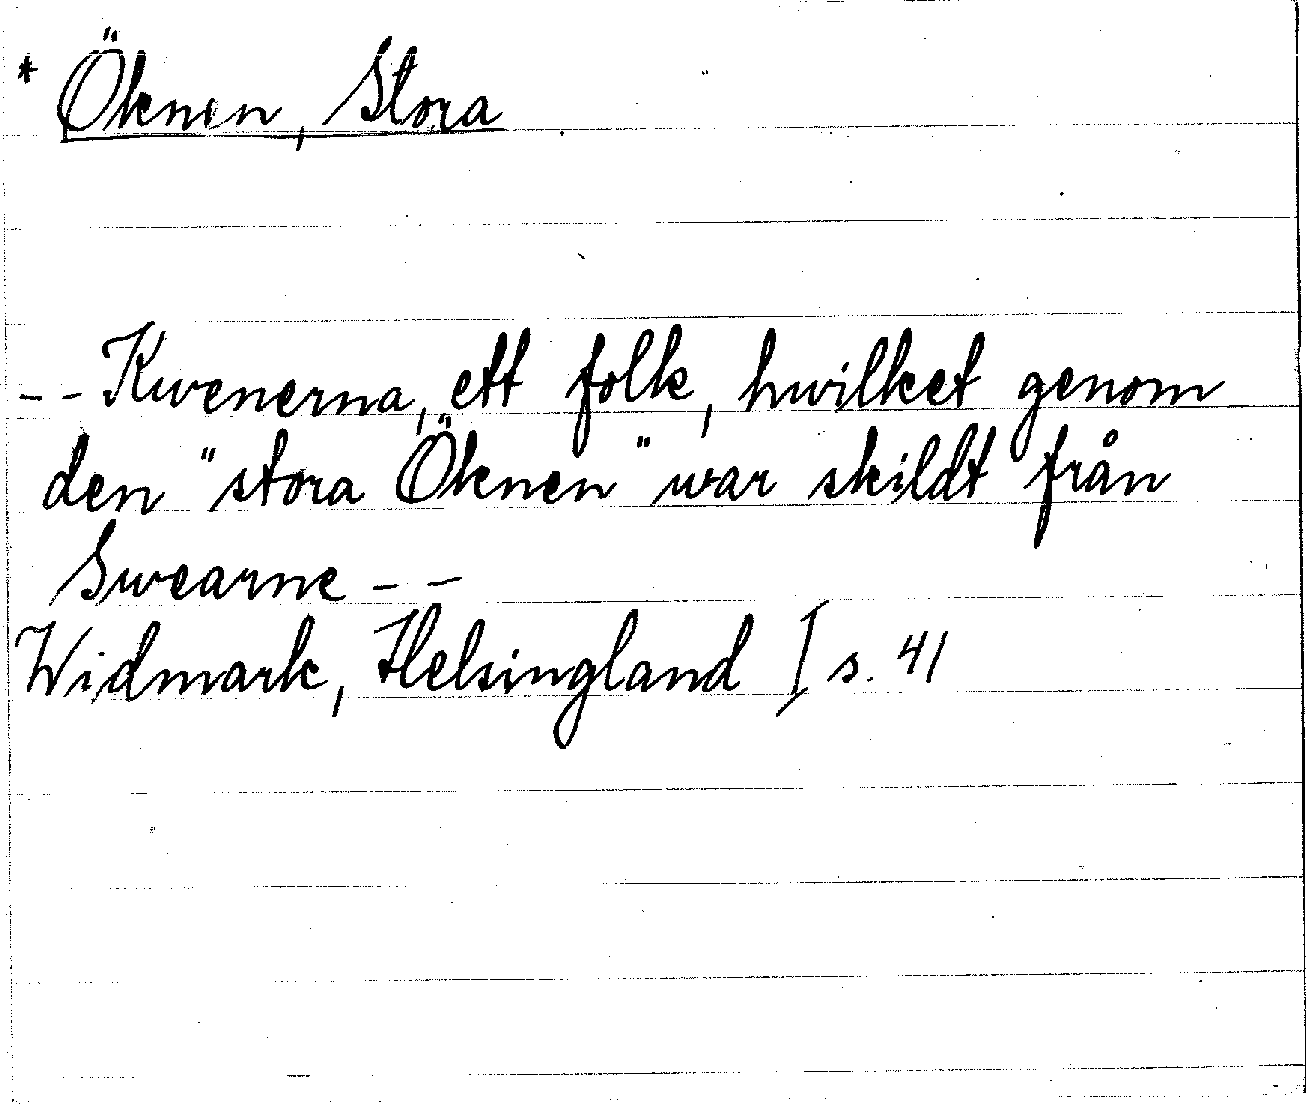 * Öknen, Stora
- - Kwenerna, ett folk, hwilket genom
den "stora Öknen" war skildt från
Swearne - -
Widmark, Helsingland I s. 41